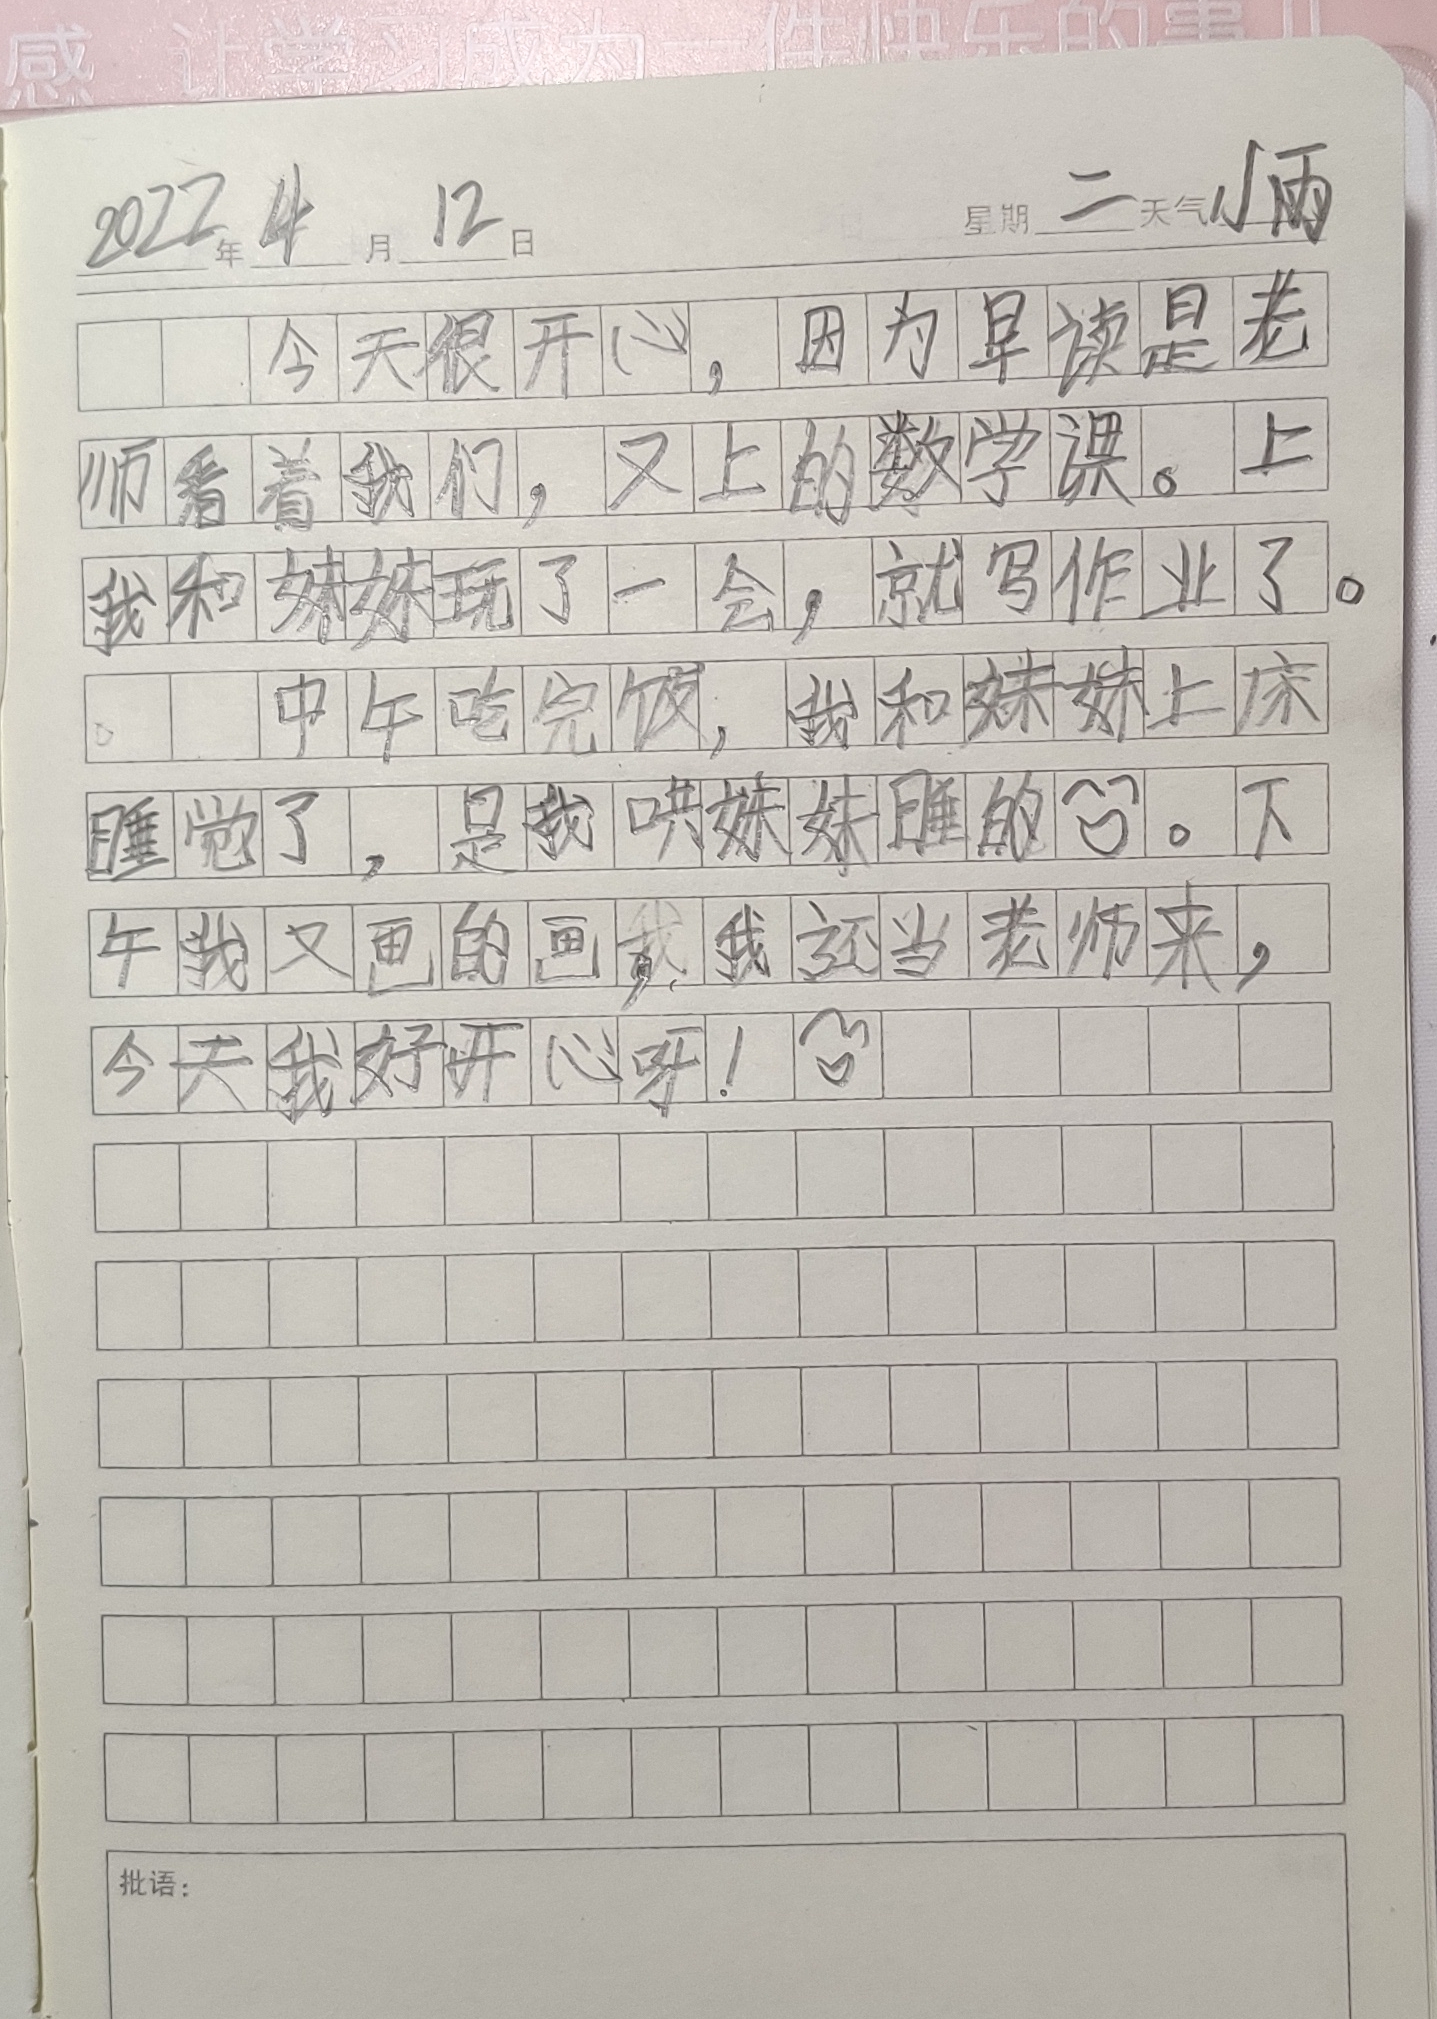 感 让学习成为一件快乐的事儿
2022年4月12日 星期二天气小雨
今天很开心，因为早读是老
师看着我们，又上的数学课。上
我和妹妹玩了一会，就写作业了。
。中午吃完饭，我和妹妹上床
睡觉了，是我哄妹妹睡的。下
午我又画的画，我还当老师来，
今天我好开心呀！
批语：